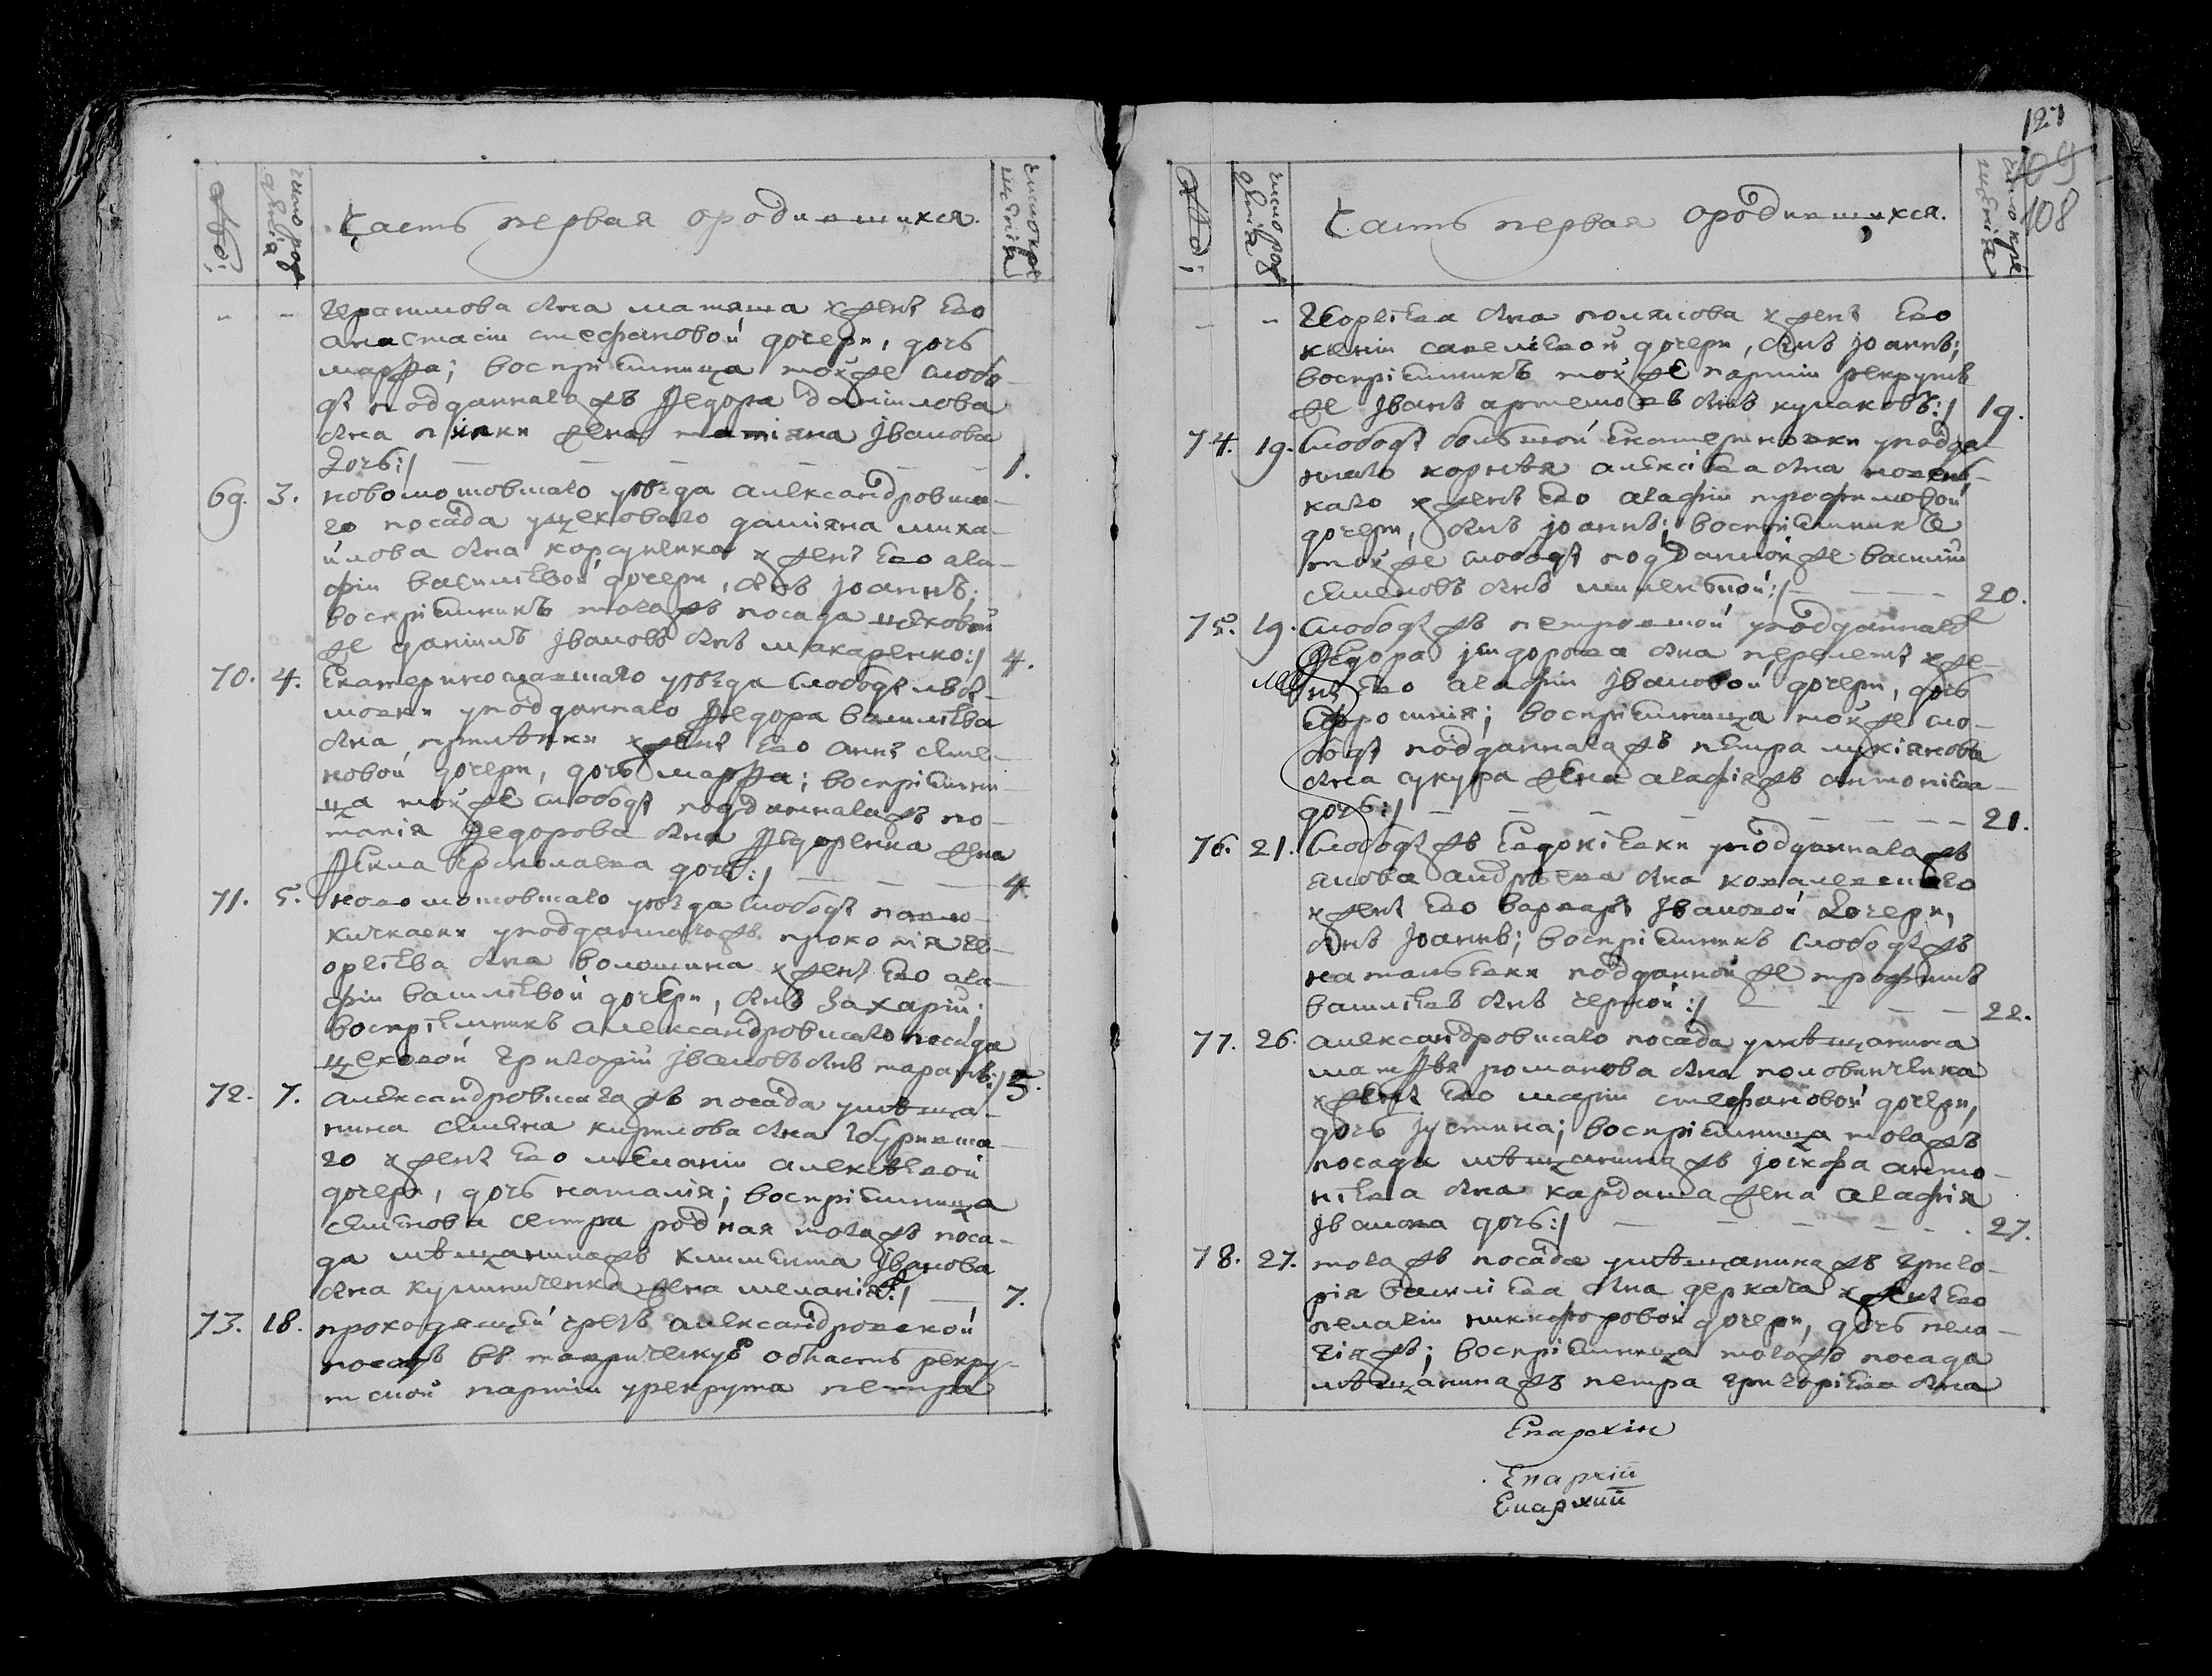 Часть первая ородившихся.
число рож
дения
число кре
щения
Герасимова сна матяша у жены его
анастасіи стефановой дочери, дочь
марѳа; воспріемница той же слобо-
ды подданнагожъ Ѳедора данилова
сна пілки жена татіана Іванова
дочь:/ 1.
69. 3. новомосковскаго уѣзда александровска-
го посада уцеховаго даміана миха-
йлова сна корсуненка у жены его ага-
фіи василіевой дочери, снъ Іоаннъ;
воспріемникъ тогажъ посада цеховой
же даніилъ Івановъ снъ макаренко:/ 4.
70. 4. Екатеринославскаго уѣзда слободы
уподданнаго Ѳедора василіева
сна у жены его анны симе-
новой дочери, дочь марѳа; воспріемни-
ца той же слободы подданнагожъ по-
Ѳедорова сна Ѳедоренка жена
Ѳекла дочь:/ 4.
71. 5. новомосковскаго уѣзда слободы павло-
кичкаски уподданнагожъ прокопія ге-
оргіева сна волошина у жены его ага-
фіи василіевой дочери, снъ Захарій;
воспріемникъ александровскаго посада
цеховой григорій Івановъ снъ таранъ:/ 5.
72. 7. александровскагожъ посада умѣща-
нина семена кирилова сна
го у жены его меланіи алексѣевой
дочери, дочь наталія; воспріемница
семенова сестра родная тогажъ поса-
да мѣщанинажъ климента Іванова
сна жена меланія:/ 7.
73. 18. проходящей чрезъ александровской
посадъ въ таврическую область рекру-
тской партіи урекрута петра
127
69
108
Часть первая ородившихся.
число рож
дения
число кре
щения
Георгіева сна полякова у жены его
ксеніи савеліевой дочери, снъ Іоаннъ;
воспріемникъ той же партіи рекрутъ
же Іванъ артемовъ снъ кулаковъ:/ 19.
74. 19. слободы большой Екатериновки упод­да-
ннаго корнѣя алексіева сна
каго у жены его агафіи трофимовой
дочери, снъ Іоаннъ; воспріемникъ
той же слободы подданной же василій
семеновъ снъ :/ 20.
75. 19. слободыжъ петровской уподданнаго
Ѳедора сидорова сна у же-
ны его агафіи Івановой дочери, дочь
Ефросинія; воспріемница той же сло-
боды подданнагажъ петра лукіянова
сна сукура жена агафіяжъ антоніева
дочь:/ 21.
76. 21. слободыжъ Евдокіевки уподданнагажъ
якова андрѣева сна ковалевскаго
у жены его варвары Івановой дочери,
снъ Іоаннъ; воспріемникъ слободыжъ
наталіевки подданной же трофимъ
василіевъ снъ черной:/ 22.
77. 26. александровскаго посада умѣщанина
матѳѣя романова сна половинченка
у жены его маріи стефановой дочери,
дочь Іустина; воспріемница тогажъ
посада мѣщанинажъ Іосифа анто-
ніева сна кардаша жена агафія
Іванова дочь:/ 27.
78. 27. тогажъ посада умѣщанинажъ григо-
рія василіева сна деркача у жены его
пелагіи никифоровой дочери, дочь пела-
гіяжъ; воспріемница тогожъ посада
мѣщанинажъ петра григоріева сна
Епархіи
Епархіи
Епархии